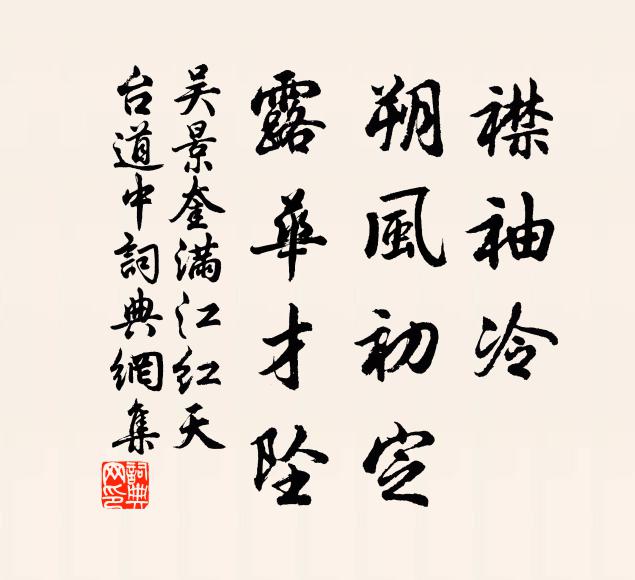 襟袖冷
朔風初定
露華才墜
吴景奎滿江紅天
台道中詞典網集
詞典网印